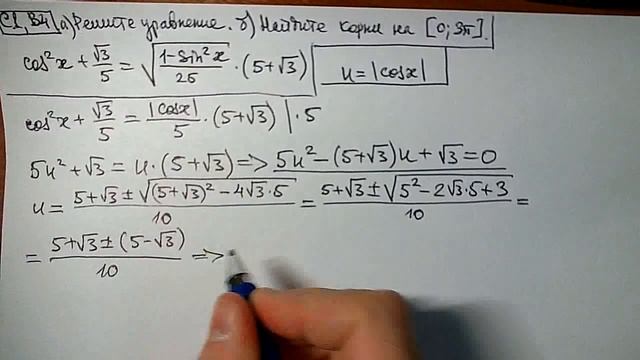 C1, В4 а) Решите уравнение. б) Найдите корни на [0; 3π].
cos²x + √3/5 = √((1-Sin²x)/25) · (5+√3) | u = |cosx|
cos²x + √3/5 = |cosx|/5 · (5+√3) | · 5
5u² + √3 = u · (5+√3) => 5u² - (5+√3)u + √3 = 0
u = (5+√3 ± √((5+√3)² - 4√3·5))/10 = (5+√3 ± √(5² - 2√3·5 + 3))/10 =
= (5+√3 ± (5-√3))/10 =>